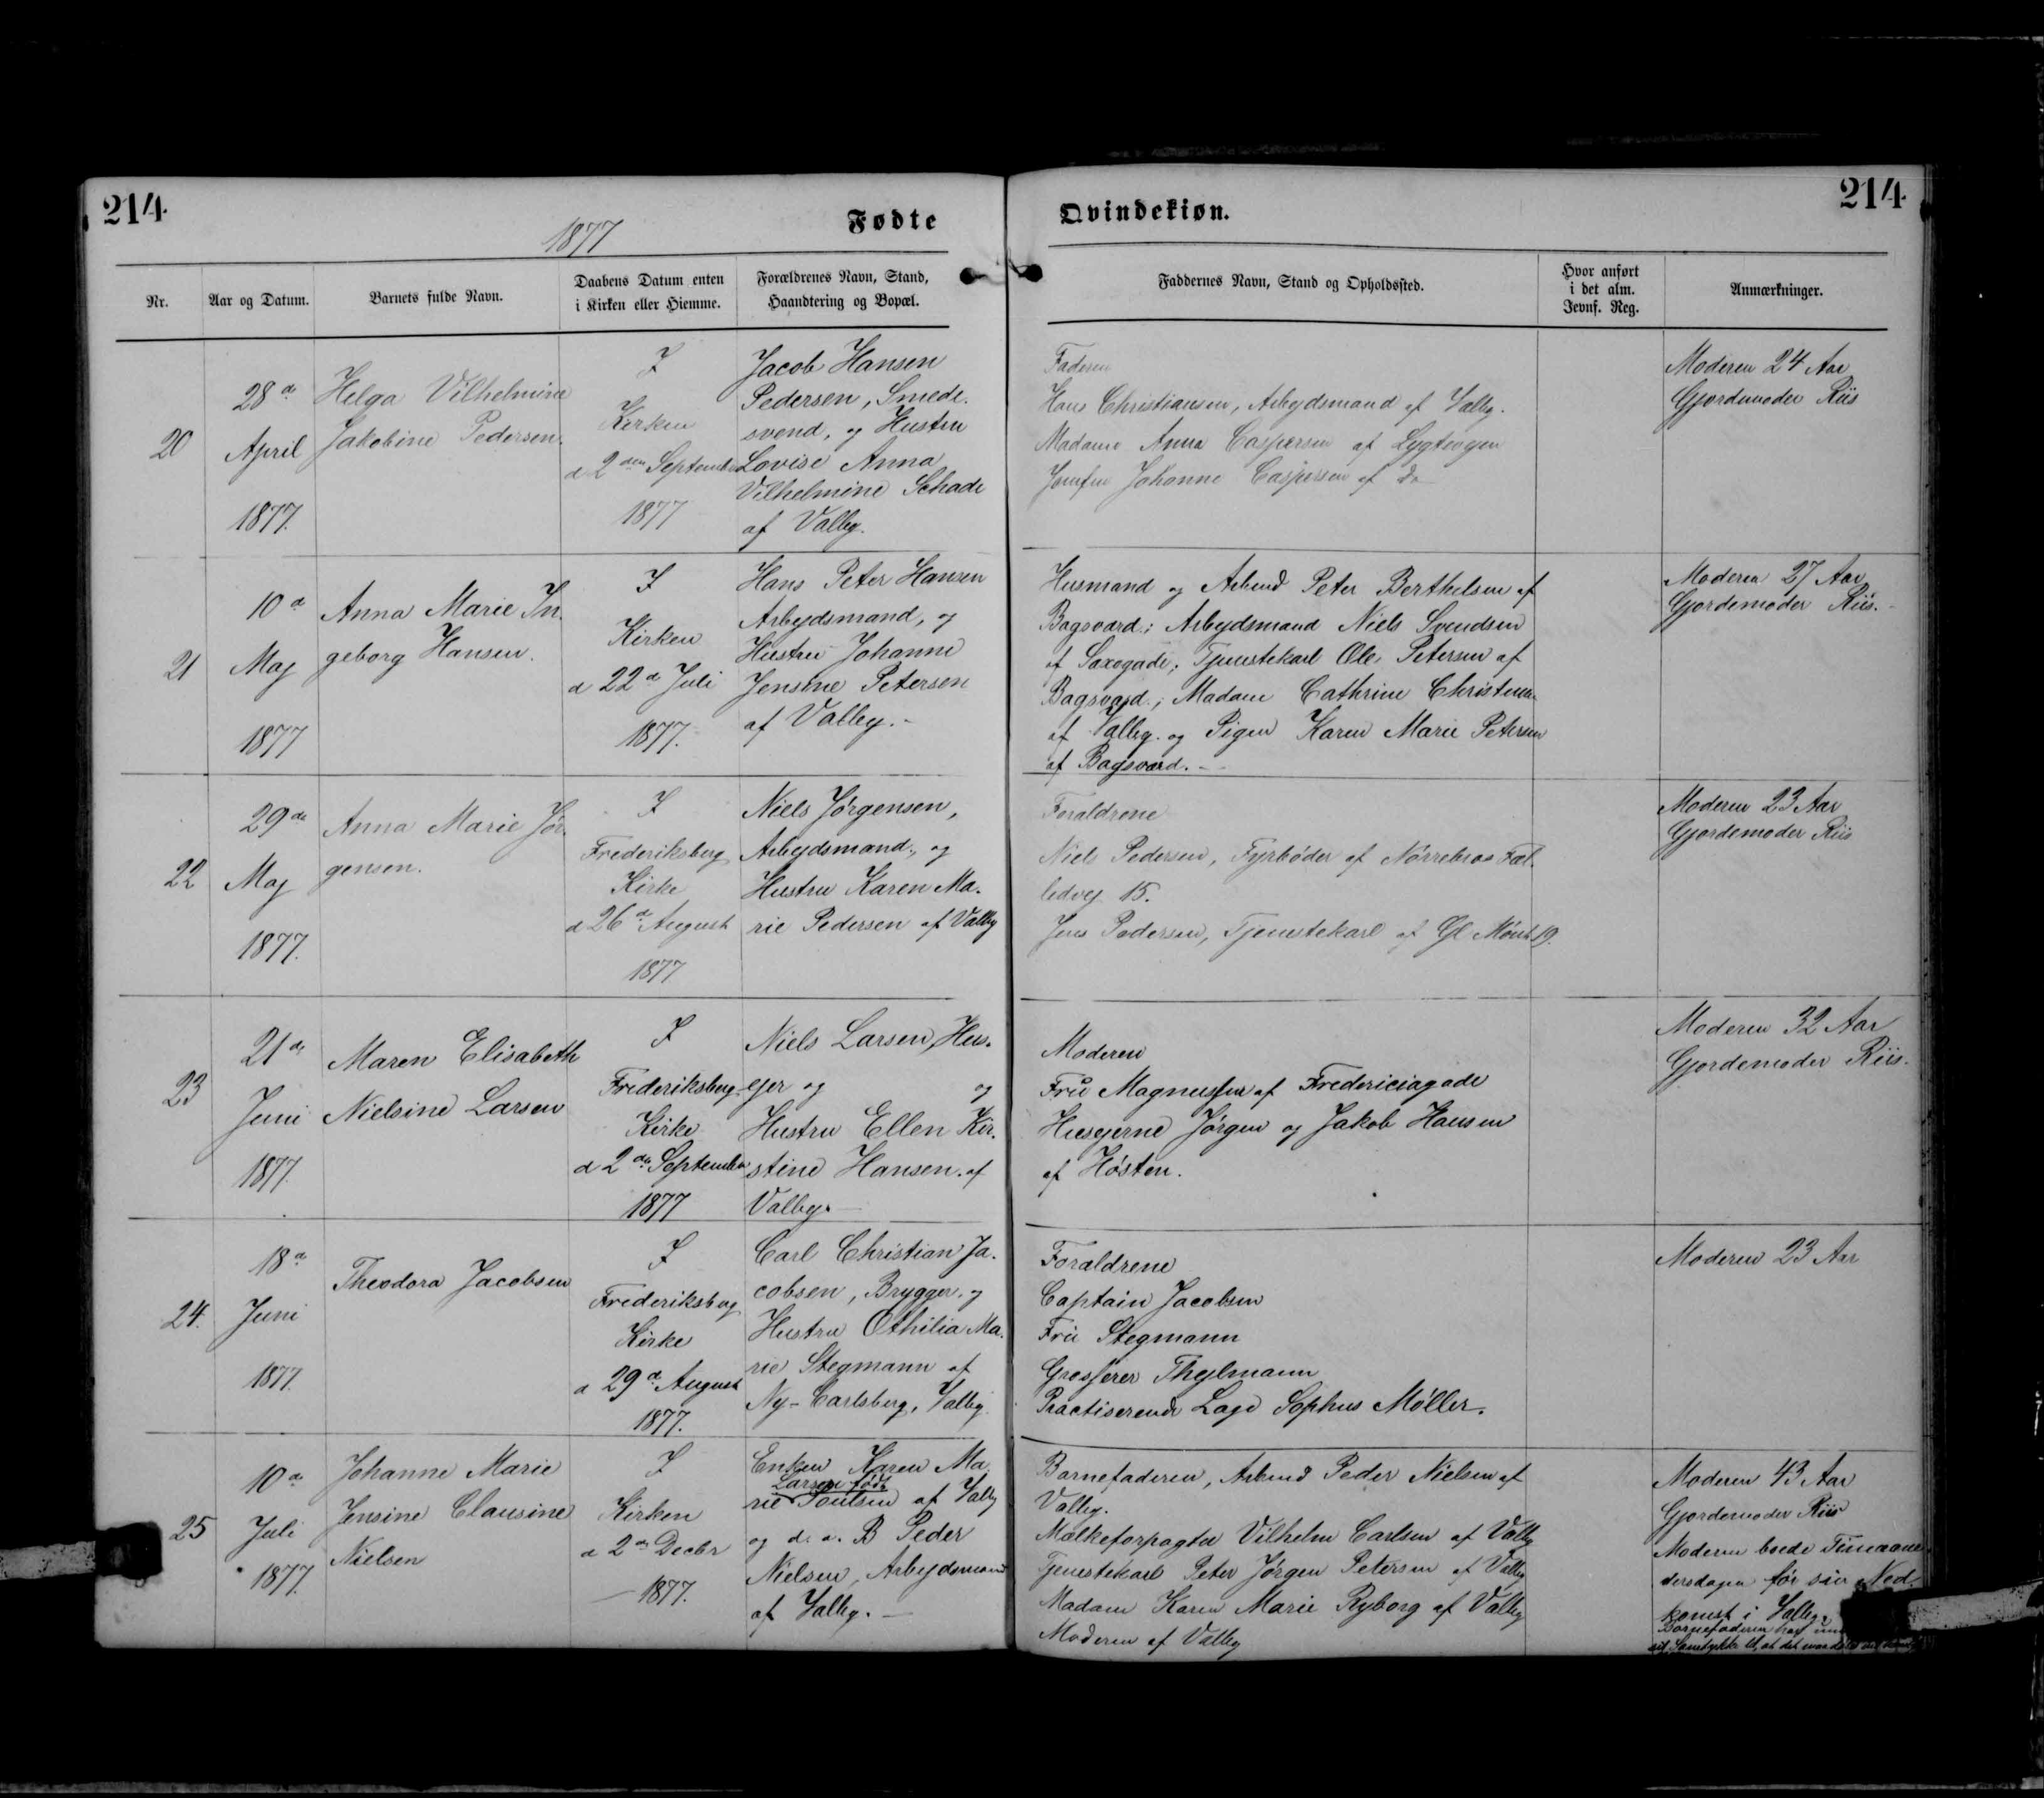 214
1877
Fødte
Qvindekiøn.
214
Nr.
Aar og Datum.
Barnets fulde Navn.
Daabens Datum enten
i Kirken eller Hiemme.
Forældrenes Navn, Stand,
Haandtering og Bopæl.
Faddernes Navn, Stand og Opholdssted.
Hvor anført
i det alm.
Jevnf. Reg.
Anmærkninger.
20
28d
April
1877.
Helga Vilhelmine
Jakobine Pedersen.
I
Kirken
d 2den September
1877
Jacob Hansen
Pedersen, Smede-
svend, og Hustru
Lovise Anna
Vilhelmine Schade
af Valby.
Faderen
Hans Christiansen, Arbejdsmand af Valby.
Madame Anna Caspersen af Lygtevejen
Jomfru Johanne Caspersen af do
Moderen 24 Aar
Gjordemoder Riis
21
10d
Maj
1877
Anna Marie In-
geborg Hansen.
I
Kirken
d 22d Juli
1877.
Hans Peter Hansen
Arbejdsmand, og
Hustru Johanne
Jensine Petersen
af Valby.-
Husmand og Arbmd Peter Berthelsen af
Bagsværd; Arbejdsmand Niels Svendsen
af Saxogade; Tjenestekarl Ole Petersen af
Bagsværd; Madam Cathrine Christensen
af Valby og Pigen Karen Marie Petersen
af Bagsværd.-
Moderen 27 Aar
Gjordemoder Riis.-
22
29de
Maj
1877.
Anna Marie Jør-
gensen.
I
Frederiksberg
Kirke
d 26d August
1877
Niels Jørgensen,
Arbejdsmand, og
Hustru Karen Ma-
rie Pedersen af Valby
Forældrene
Niels Pedersen, Fyrbøder af Nørrebros Fæl-
ledvej 15.
Jens Pedersen, Tjenestekarl af Gl Mønt 19.
Moderen 23 Aar
Gjordemoder Riis
23
21de
Juni
1877.
Maren Elisabeth
Nielsine Larsen
I
Frederiksberg
Kirke
d 2den September
1877
Niels Larsen, Hus-
ejer og og
Hustru Ellen Kir-
stine Hansen af
Valby.
Moderen
Fru Magnussen af Fredericiagade
Husejerne Jørgen og Jakob Hansen
af Høsten.
Moderen 32 Aar
Gjordemoder Riis.
24.
18d
Juni
1877.
Theodora Jacobsen
I
Frederiksberg
Kirke
d 29d August
1877.
Carl Christian Ja-
cobsen, Brygger, og
Hustru Othilia Ma-
rie Stegmann af
Ny-Carlsberg, Valby
Forældrene
Captain Jacobsen
Fru Stegmann
Grosserer Thejlmann
Practiserende Læge Sophus Møller.
Moderen 23 Aar
25
10d
Juli
1877.
Johanne Marie
Jensine Clausine
Nielsen
I
Kirken
d 2den Decbr
1877.
Enken Karen Ma-
Larsen født
rie Poulsen af Valby
og d. a. B Peder
Nielsen, Arbejdsmand
af Valby.-
Barnefaderen, Arbmd Peder Nielsen af
Valby.
Mælkeforpagter Vilhelm Carlsen af Valby
Tjenestekarl Peter Jørgen Petersen af Valby
Madam Karen Marie Ryborg af Valby
Moderen af Valby
Moderen 43 Aar
Gjordemoder Riis
Moderen boede Timaane-
dersdagen før sin Ned-
komst i Valby.
Barnefaderen har
sit Samtykke til, at det